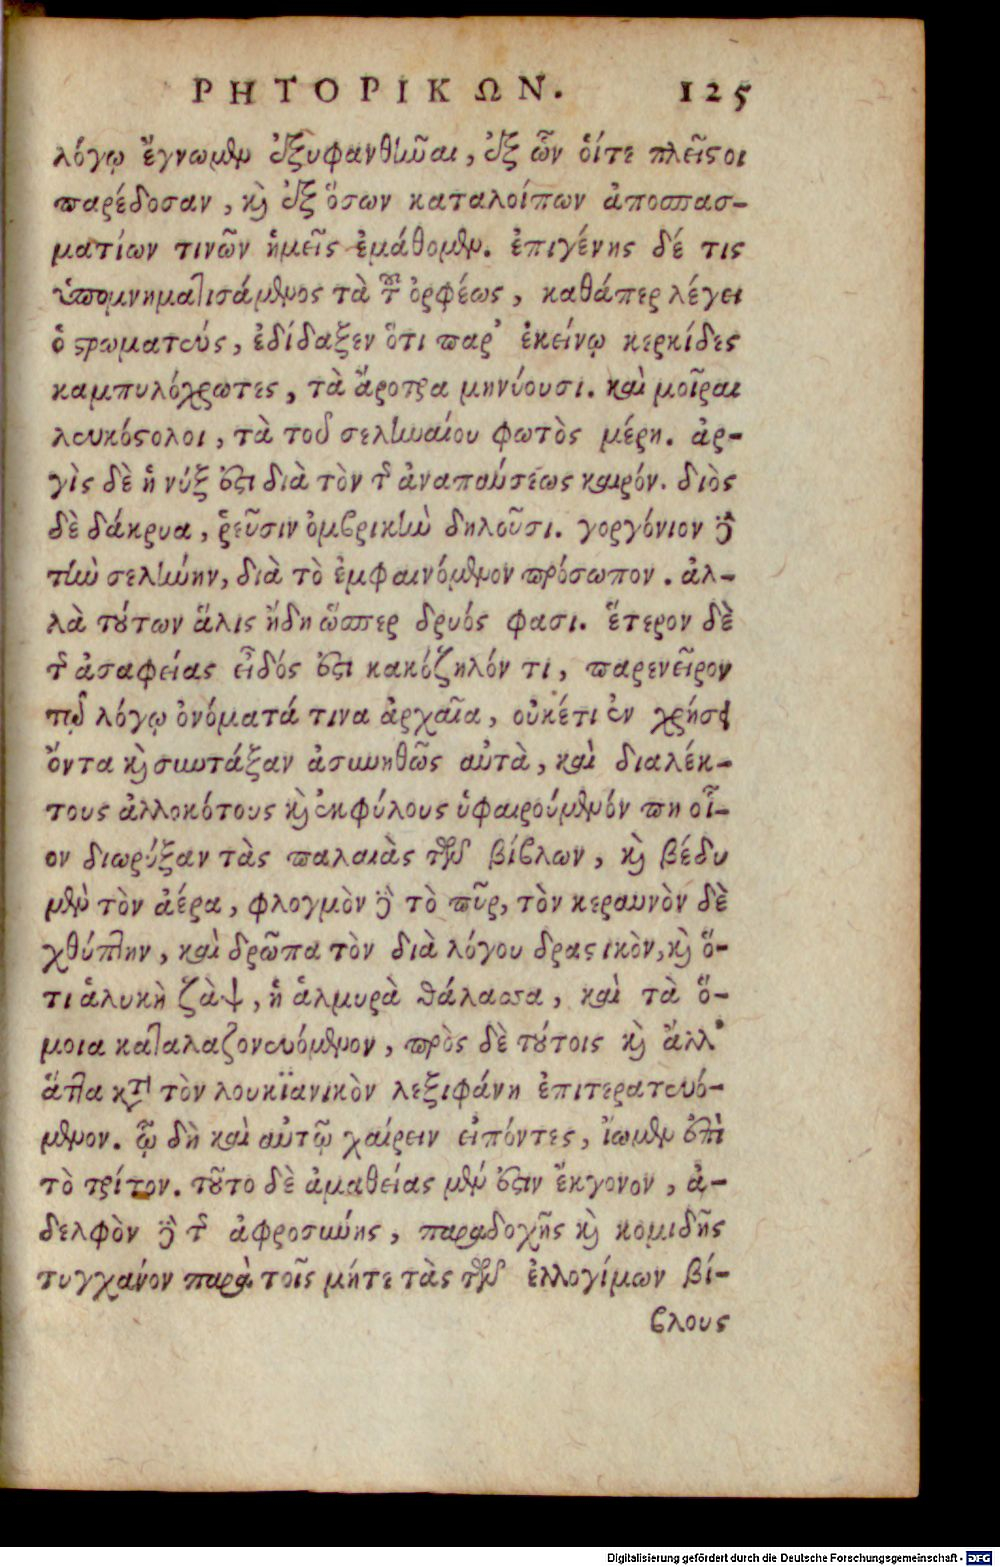 ΡΗΤΟΡΙΚΩΝ. 125
λόγῳ ἔγνωμεν ἐξυφανθῆναι, ἐξ ὧν οἵτε πλεῖστοι
παρέδοσαν, καὶ ἐξ ὅσων καταλοίπων ἀποσπασ-
ματίων τινῶν ἡμεῖς ἐμάθομεν. ἐπιγένης δέ τις
ὑπομνηματισάμενος τὰ τοῦ ὀρφέως, καθάπερ λέγει
ὁ στρωματεύς, ἐδίδαξεν ὅτι παρ' ἐκείνῳ κερκίδες
καμπυλόχρωτες, τὰ ἄροτρα μηνύουσι. καὶ μοῖραι
λευκόστολοι, τὰ τοῦ σεληναίου φωτὸς μέρη. ἀρ-
γὶς δὲ ἡ νύξ ἐστι διὰ τὸν τῆς ἀναπαύσεως καιρόν. διὸς
δὲ δάκρυα, ῥεῦσιν ὀμβρικὴν δηλοῦσι. γοργόνιον δὲ
τὴν σελήνην, διὰ τὸ ἐμφαινόμενον πρόσωπον. ἀλ-
λὰ τούτων ἅλις ἤδη ὥσπερ δρυός φασι. ἕτερον δὲ
τῆς ἀσαφείας εἶδός ἐστι κακόζηλόν τι, παρενεῖρον
τῷ λόγῳ ὀνόματά τινα ἀρχαῖα, οὐκέτι ἐν χρήσει
ὄντα καὶ συντάξαν ἀσυνηθῶς αὐτὰ, καὶ διαλέκ-
τους ἀλλοκότους καὶ ἐκφύλους ὑφαιρούμενόν πη οἷ-
ον διωρύξαν τὰς παλαιὰς τῶν βίβλων, καὶ βέδυ
μὲν τὸν ἀέρα, φλογμὸν δὲ τὸ πῦρ, τὸν κεραυνὸν δὲ
χθύπτην, καὶ δρῶπα τὸν διὰ λόγου δραστικὸν, καὶ ὅ-
τι ἁλυκὴ ζὰψ, ἡ ἁλμυρὰ θάλασσα, καὶ τὰ ὅ-
μοια καταλαζονευόμενον, πρὸς δὲ τούτοις καὶ ἄλλ'
ἅττα κατὰ τὸν λουκϊανικὸν λεξιφάνη ἐπιτερατευό-
μενον. ᾧ δὴ καὶ αὐτῷ χαίρειν εἰπόντες, ἴωμεν ἐπὶ
τὸ τρίτον. τοῦτο δὲ ἀμαθείας μέν ἐστιν ἔκγονον, ἀ-
δελφὸν δὲ τῆς ἀφροσύνης, παραδοχῆς καὶ κομιδῆς
τυγχάνον παρὰ τοῖς μήτε τὰς τῶν ἐλλογίμων βί-
βλους
Digitalisierung gefördert durch die Deutsche Forschungsgemeinschaft - DFG